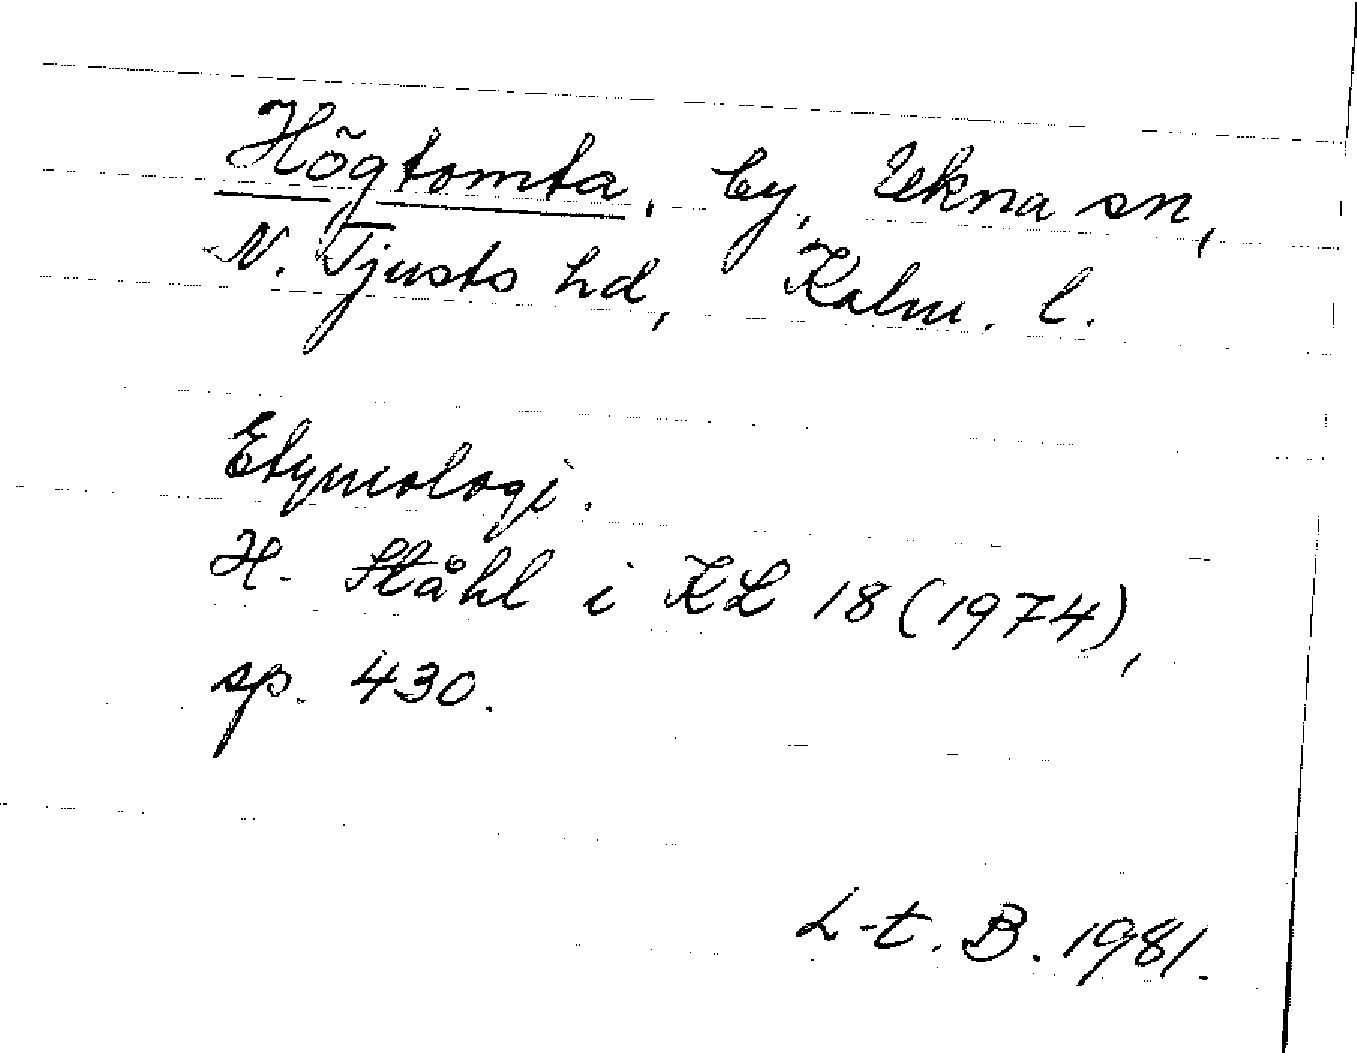 Högtomta, by, Ukna sn,
N. Tjusts hd, Kalm. l.
Etymologi.
H. Ståhl i KL 18 (1974),
sp. 430.
L-t. B. 1981.